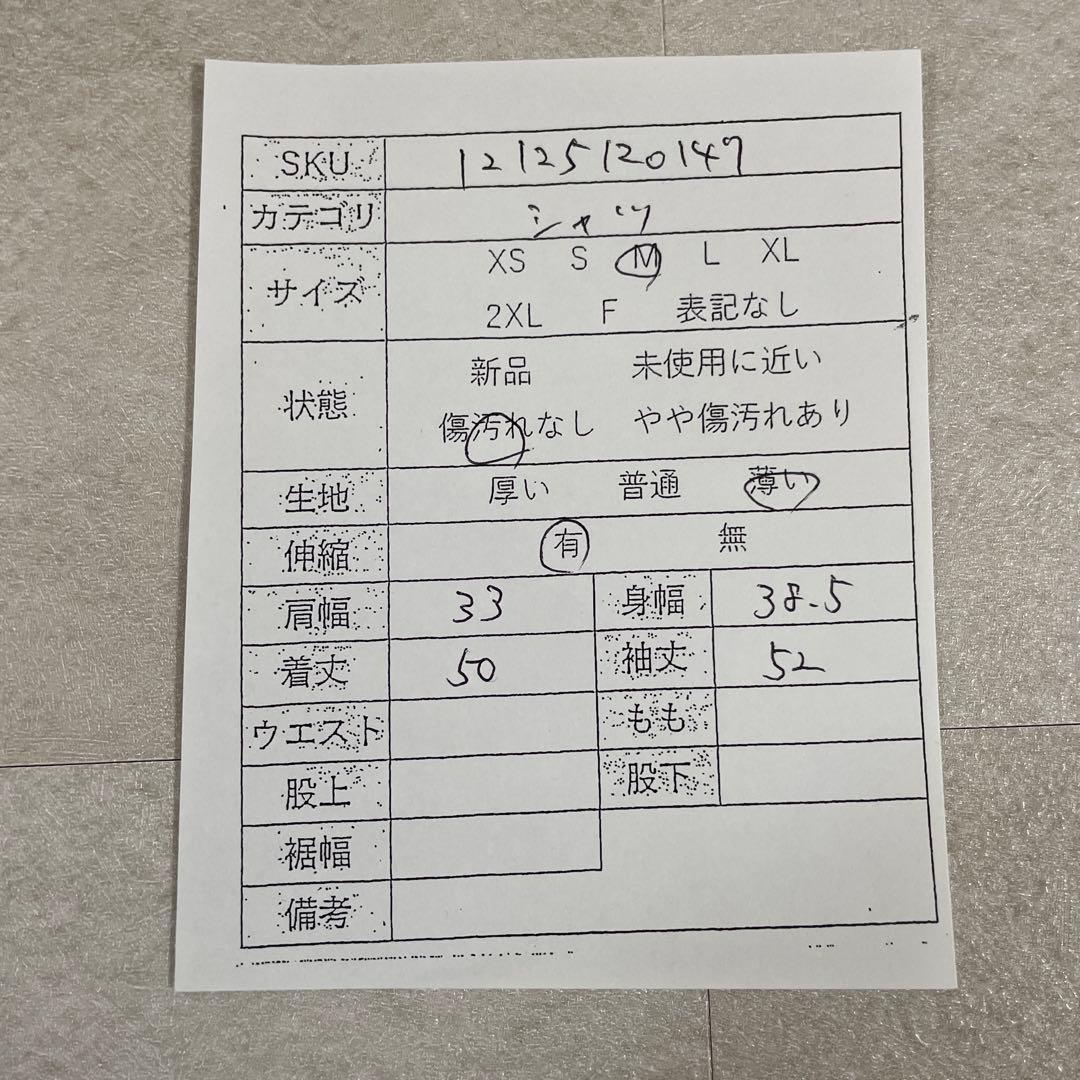 SKU 12125120147
カテゴリ シャツ
サイズ XS S M L XL
2XL F 表記なし
状態 新品 未使用に近い
傷汚れなし やや傷汚れあり
生地 厚い 普通 薄い
伸縮 有 無
肩幅 33 身幅 38.5
着丈 50 袖丈 52
ウエスト もも
股上 股下
裾幅
備考